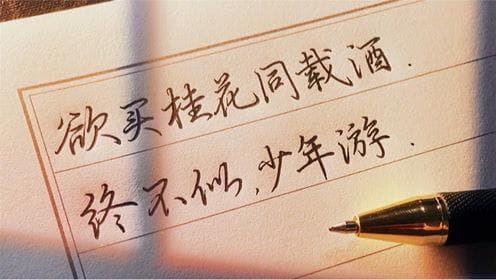 欲买桂花同载酒.
终不似,少年游.